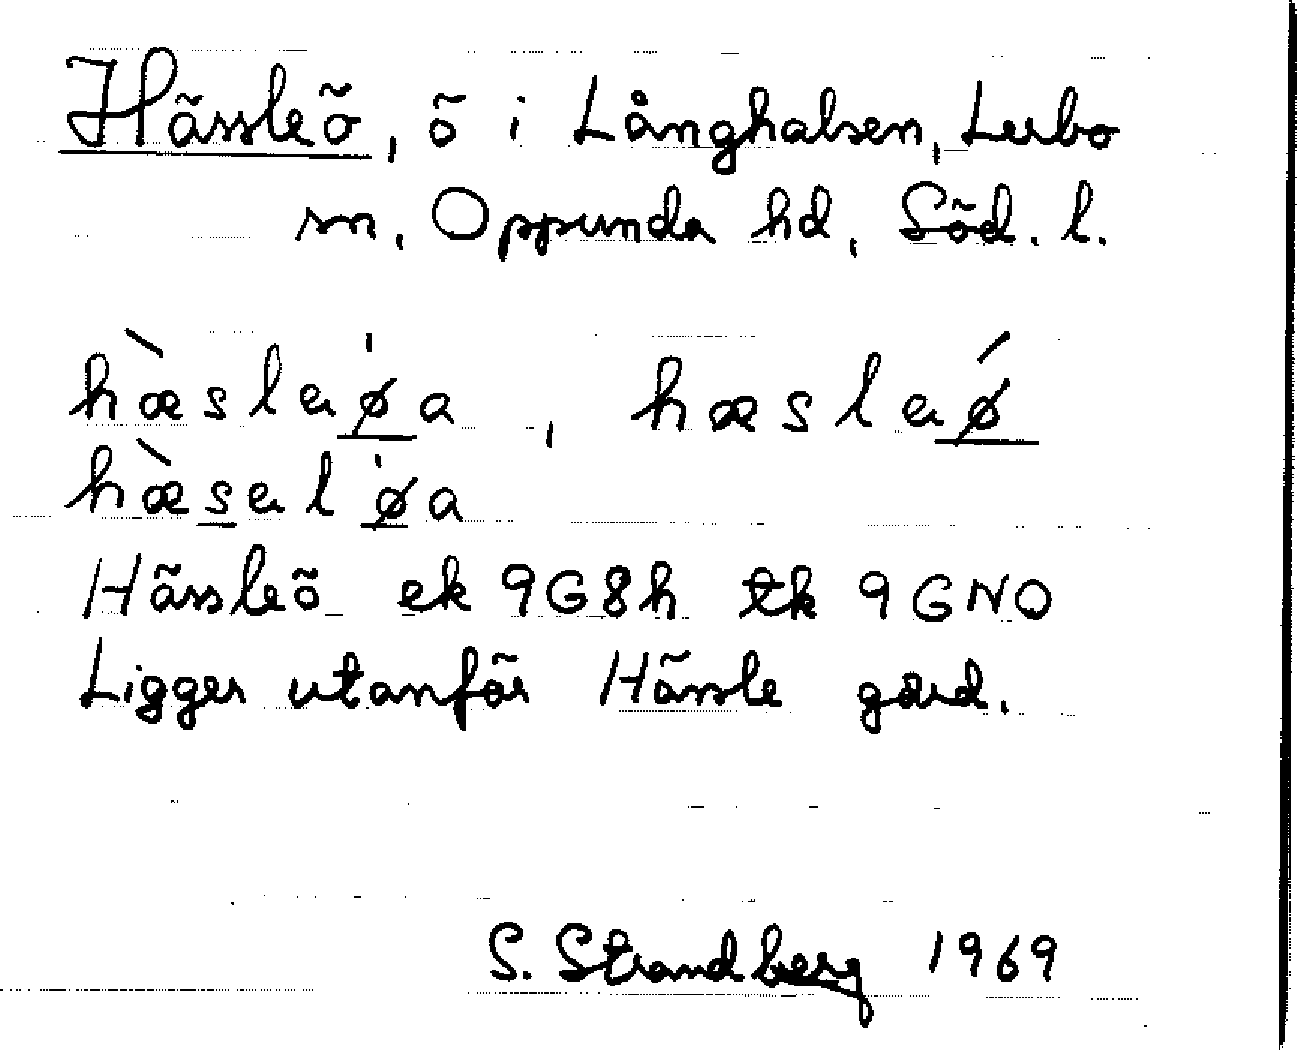 Hässleö, ö i Långhalsen, Lerbo
sn, Oppunda hd, Söd. l.
hæ̀sleø̍a, hæsleǿ
hæ̀seløa
Hässleö ek 9G8h tk 9GNO
Ligger utanför Hässle gård.
S. Strandberg 1969